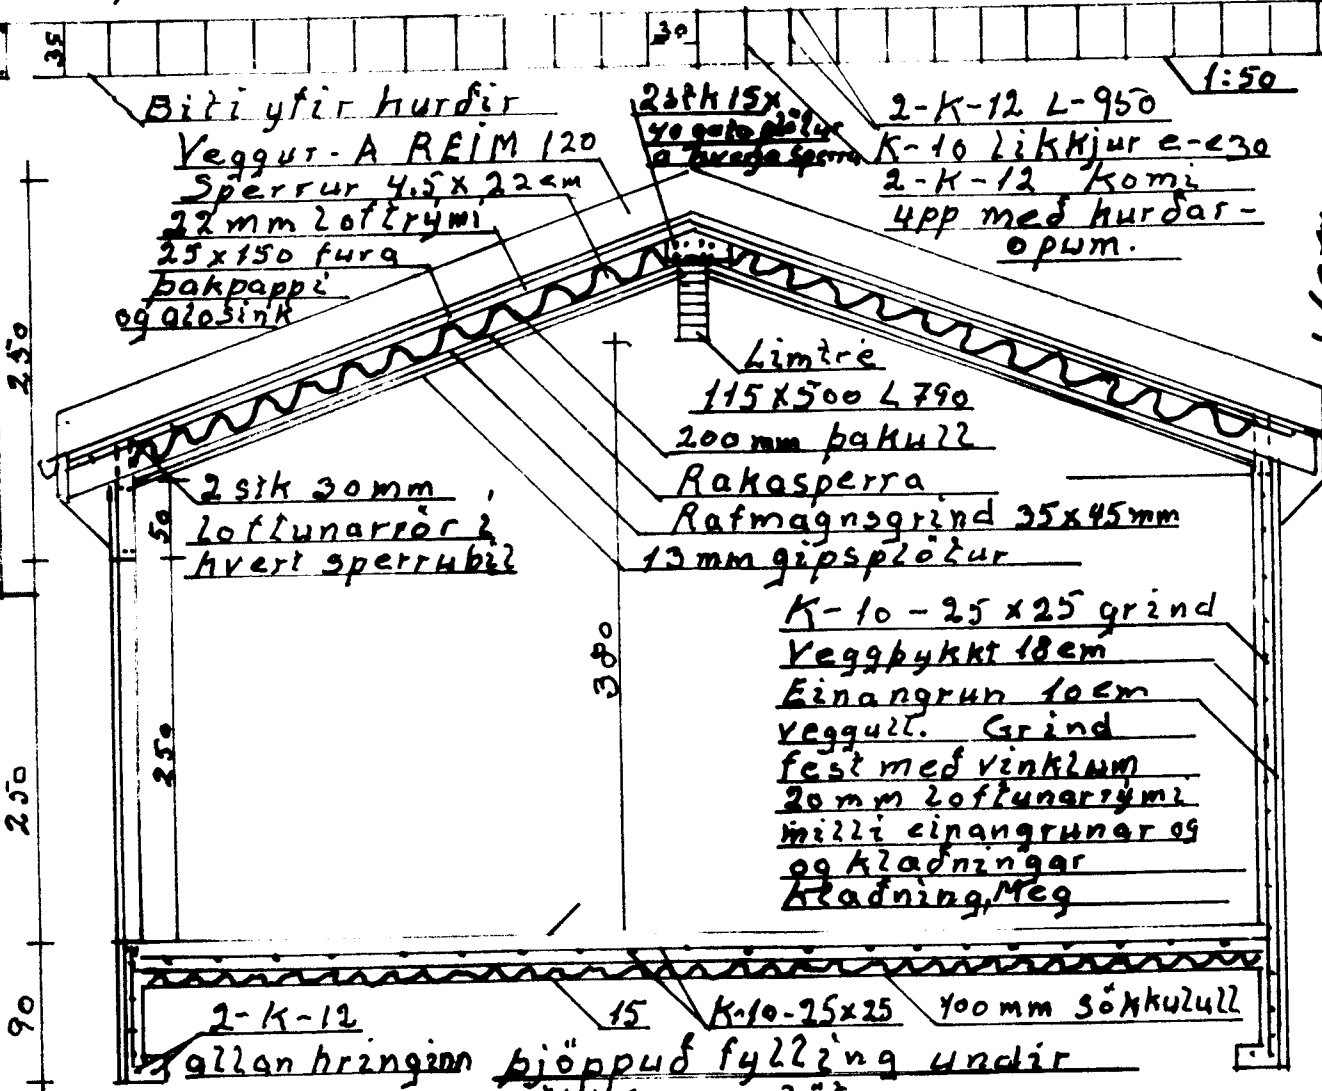 35
30
1:50
Biti yfir hurðir
Veggur-A REIM 120
Sperrur 4.5x22cm
22mm loftrými
25x150 fura
þakpappi
og alosink
2stk 15x
40 gataplötur
á hverja sperru
2-K-12 L-950
K-10 likkjur c-c30
2-K-12 Komi
upp með hurðar-
opum.
250
Limtré
115x500 L790
200mm þakull
Rakasperra
Rafmagnsgrind 35x45mm
13mm gipsplötur
2 stk 30mm
loftunarrör í
hvert sperrubil
50
250
380
K-10-25x25 grind
Veggþykkt 18cm
Einangrun 10cm
veggull. Grind
fest með vinklum
20mm loftunarrými
milli einangrunar og
og klæðningar
klæðning, Meg
250
90
2-K-12
allan hringinn
15
K-10-25x25
100mm sökkulull
þjöppuð fylling undir